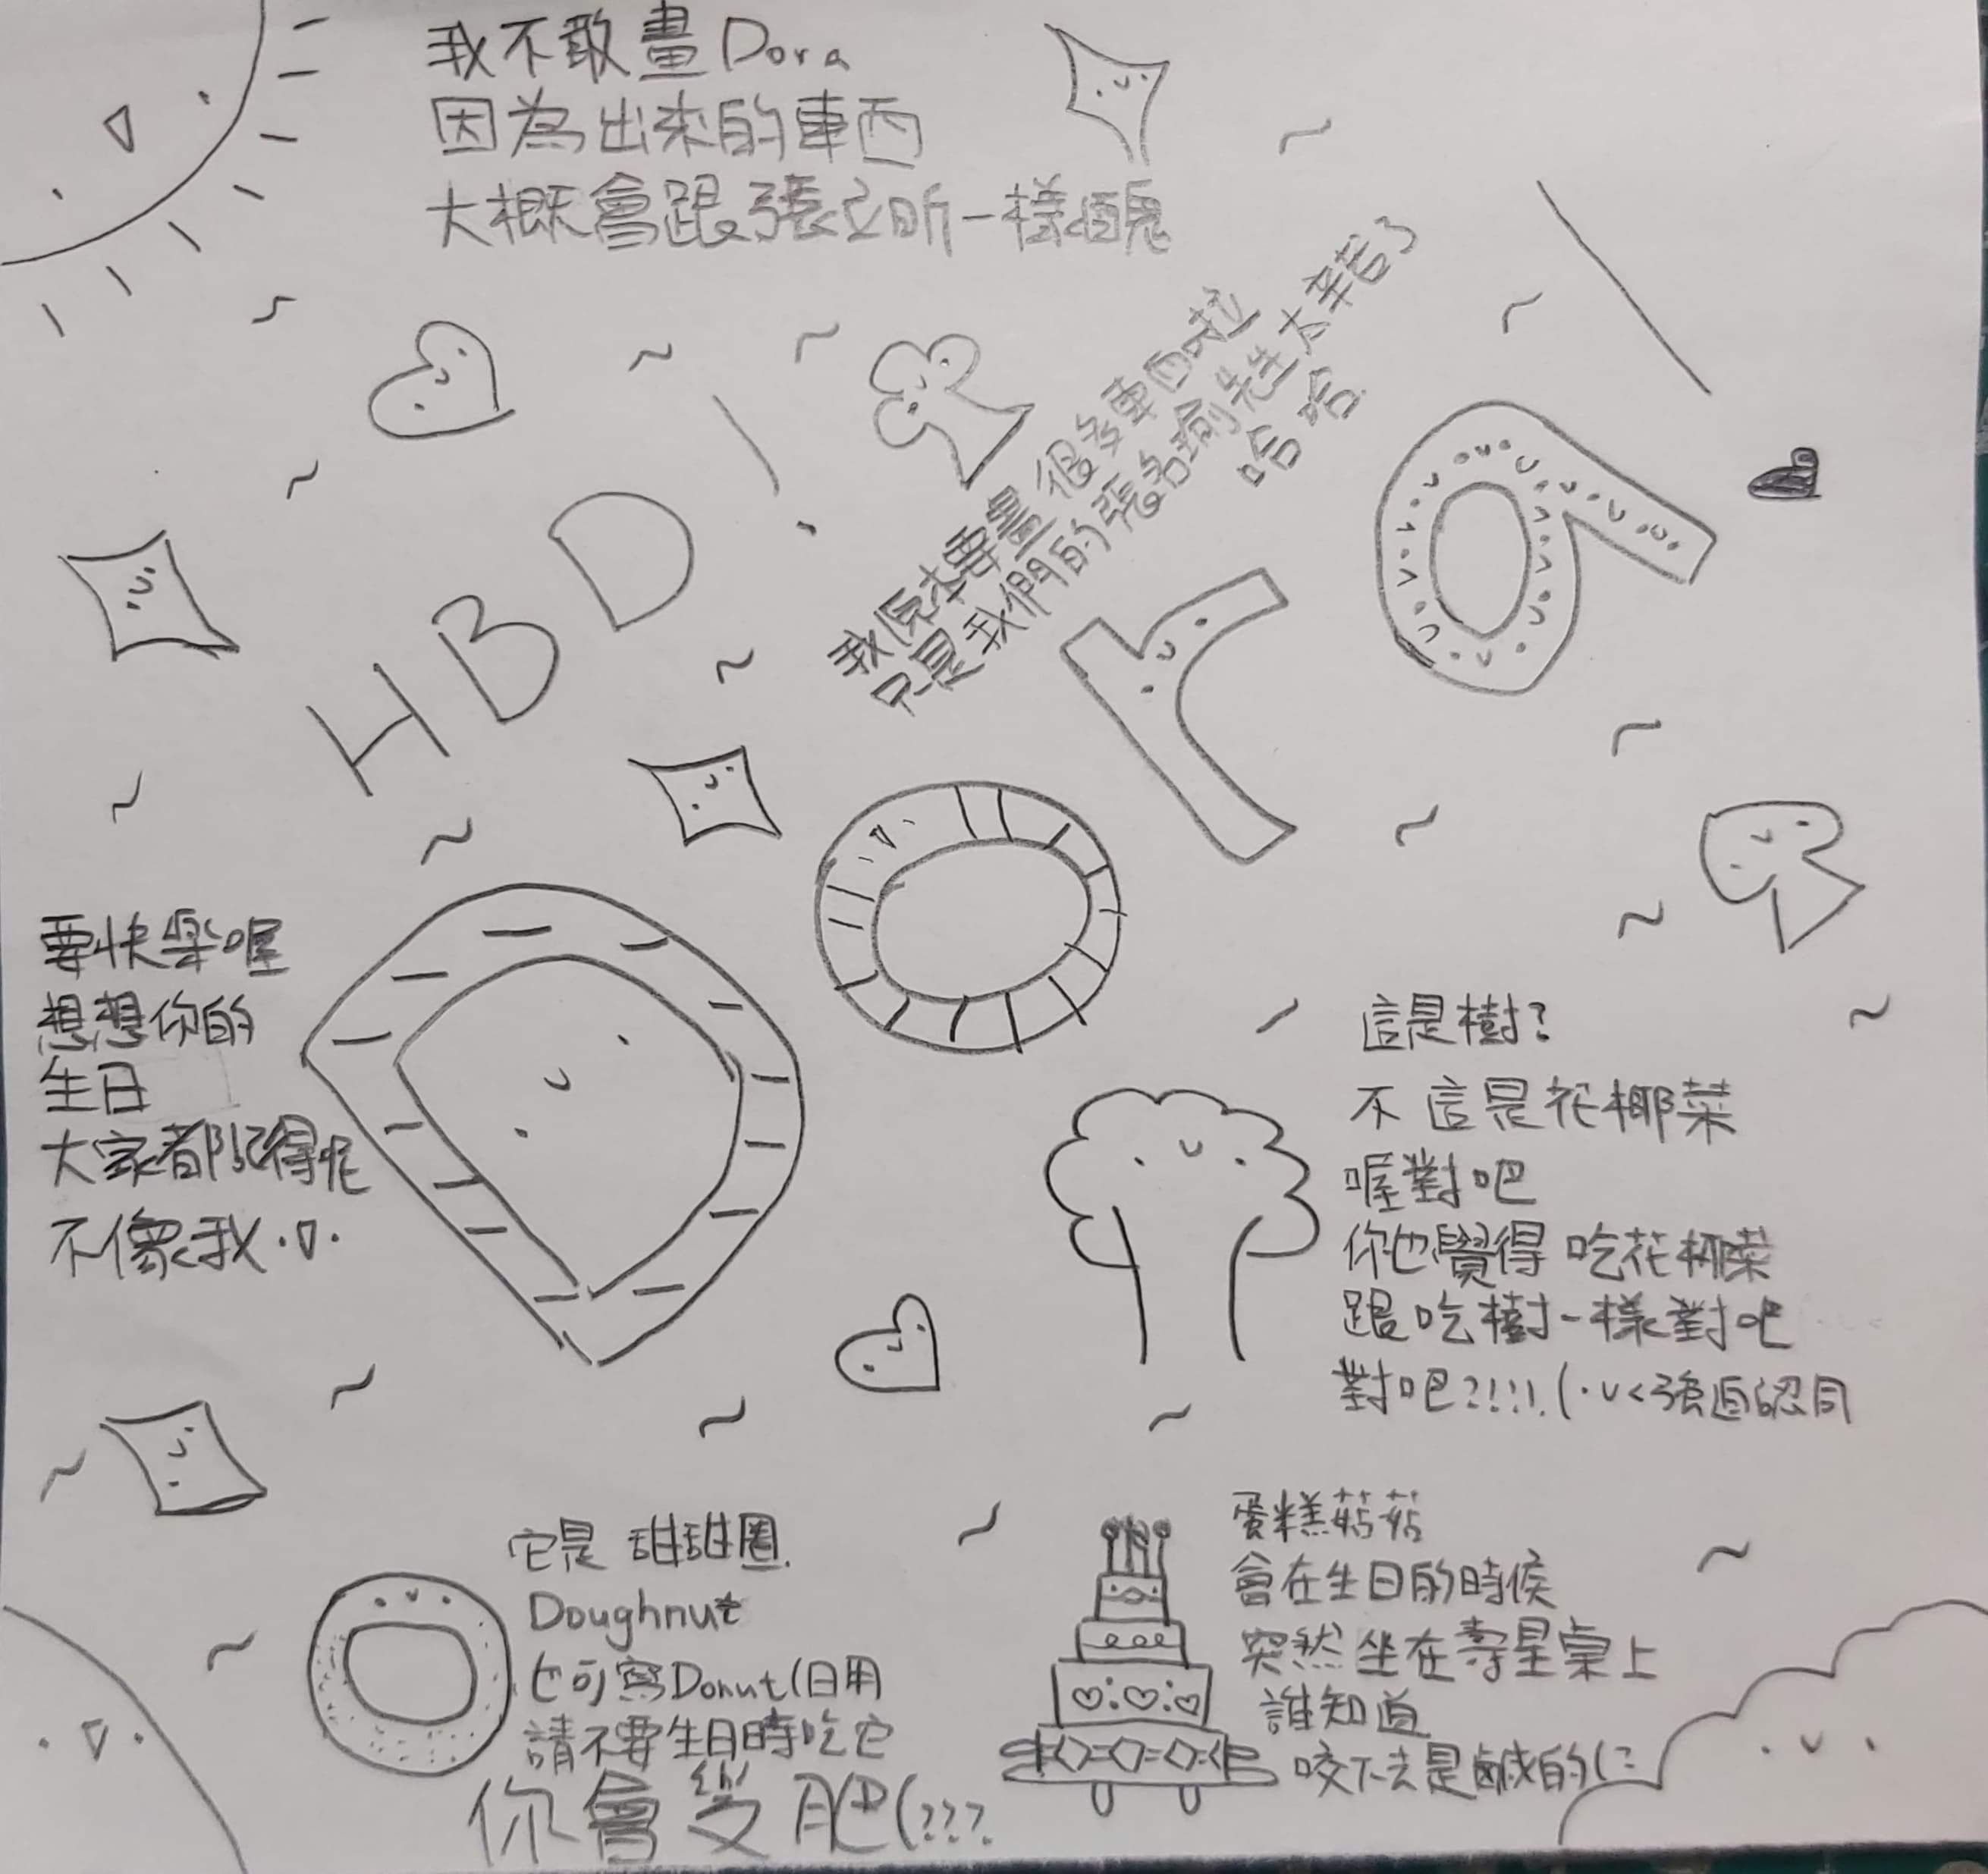 我不敢畫Dora
因為出來的東西
大概會跟張立昕一樣醜
我原本要畫很多東西啦
只是我們的張名瑜先生太辛苦了
哈哈
HBD
Dora
要快樂喔
想想你的
生日
大家都記得呢
不像我.▽.
這是樹?
不這是花椰菜
喔對吧
你也覺得吃花椰菜
跟吃樹一樣對吧
對吧?!!!(·v<強迫認同
它是甜甜圈.
Doughnut
也可寫Donut(日用
請不要生日時吃它
你會變肥(???
蛋糕菇菇
會在生日的時候
突然坐在壽星桌上
誰知道
咬下去是鹹的(: